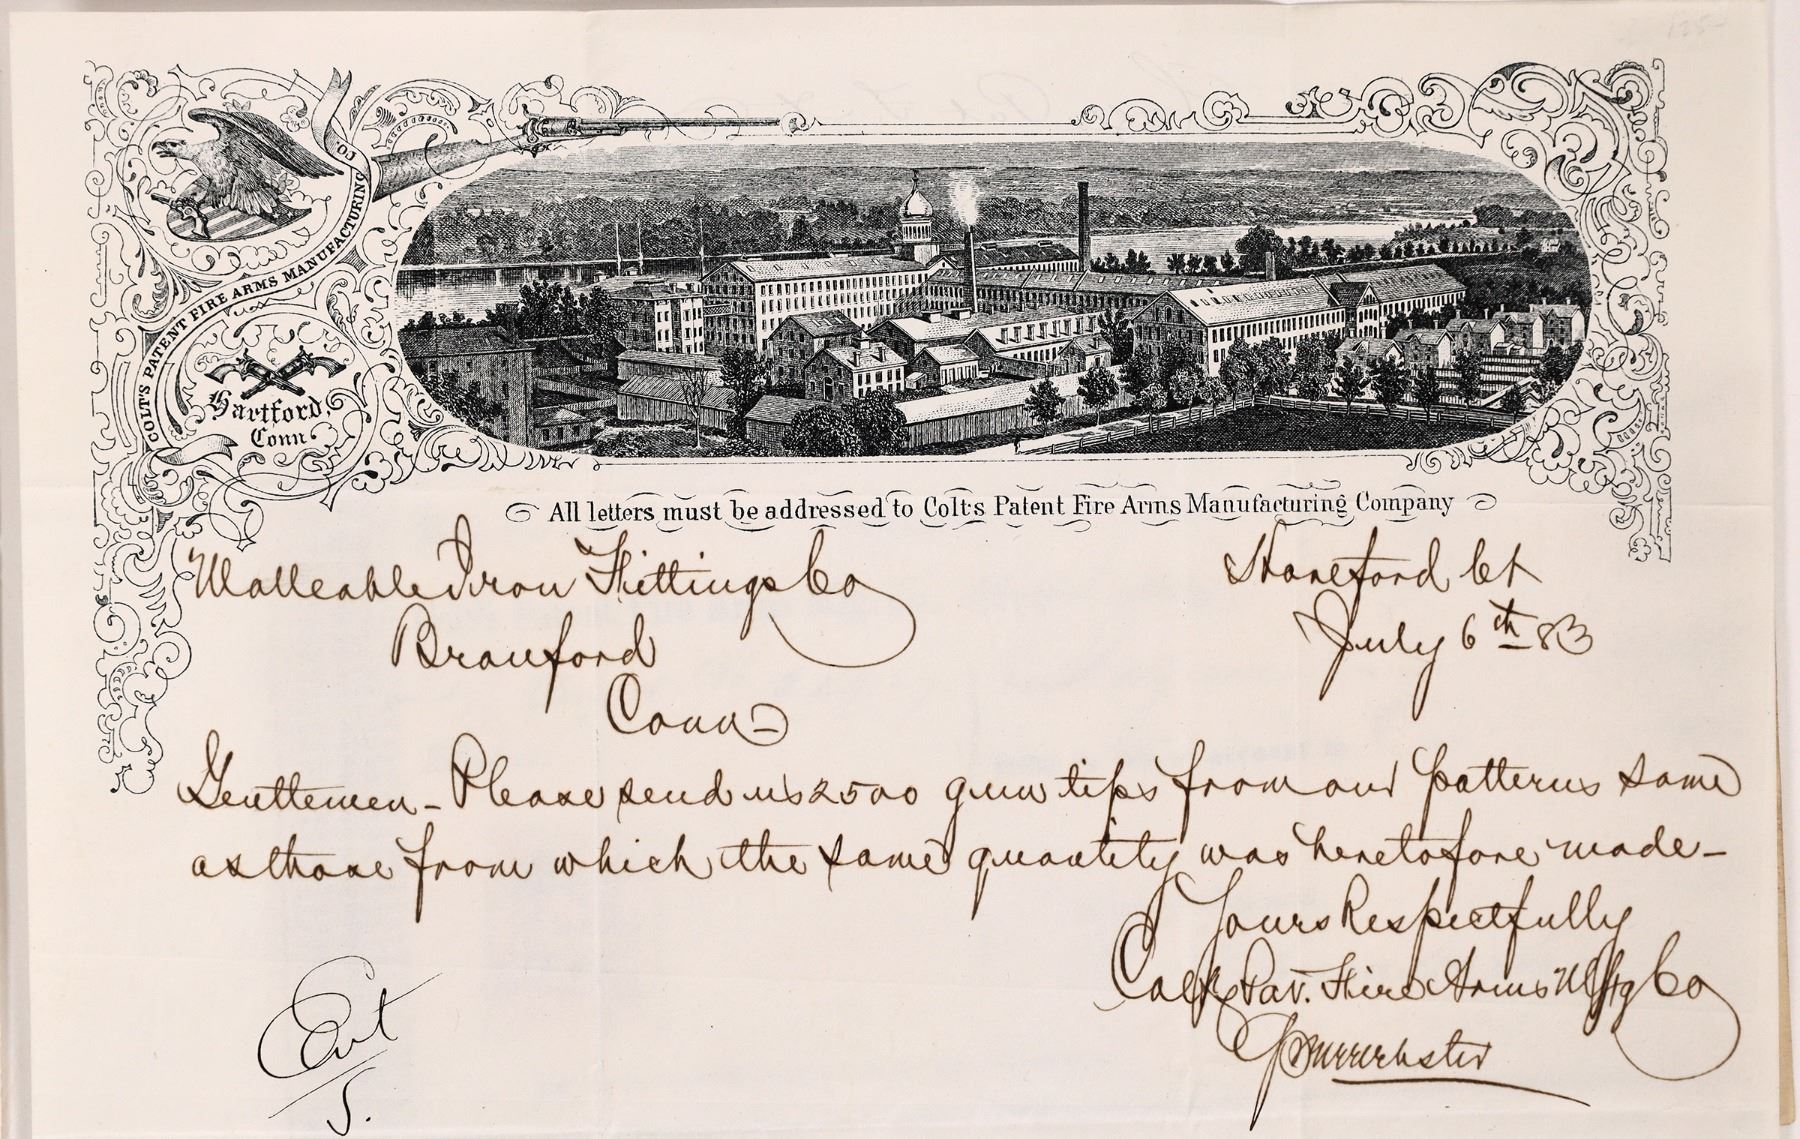 COLT'S PATENT FIRE ARMS MANUFACTURING CO.
Hartford,
Conn.
All letters must be addressed to Colts Patent Fire Arms Manufacturing Company
Malleable Iron Fittings Co
Branford
Conn
Hartford Ct
July 6th 83
Gentlemen - Please send us 2500 gun tips from our patterns same
as those from which the same quantity was heretofore made -
Yours Respectfully
Colts Pat. Fire Arms Mfg Co
Ent
S.